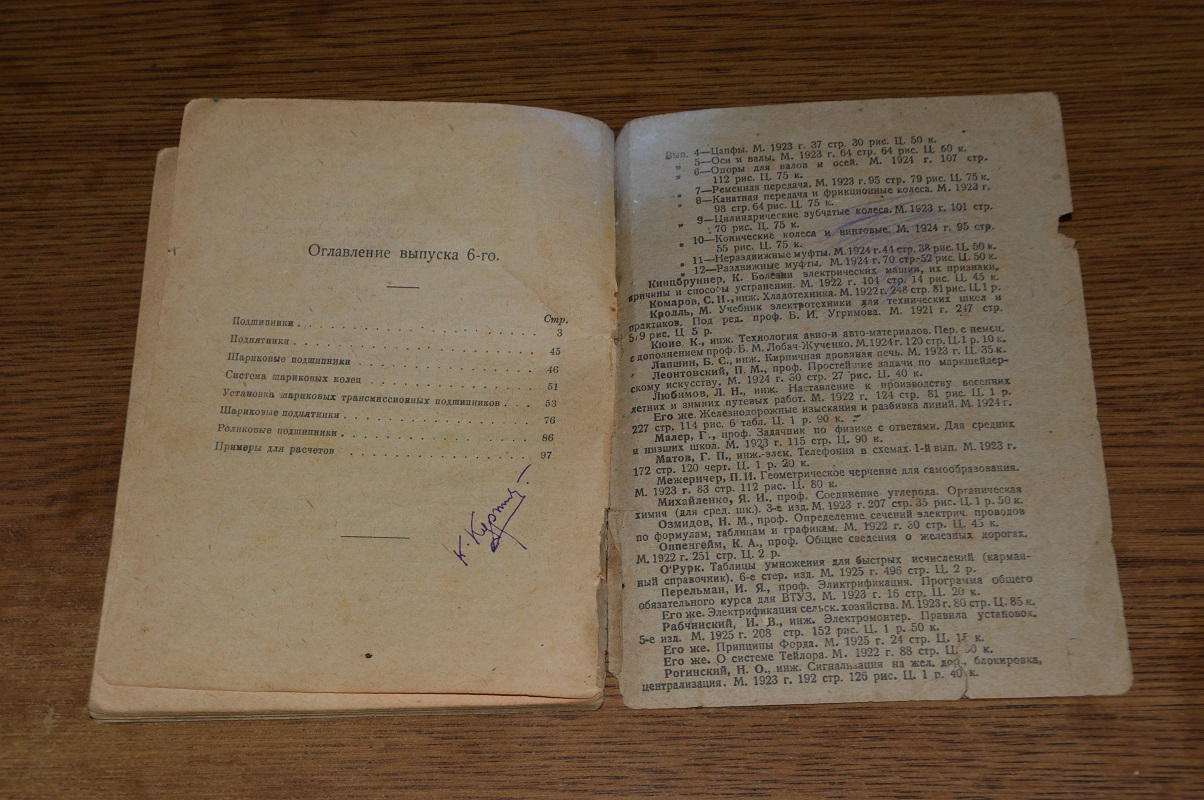 Оглавление выпуска 6-го.
Стр.
Подшипники 3
Подпятники 45
Шариковые подшипники 46
Система шариковых колец 51
Установка шариковых трансмиссионных подшипников 53
Шариковые подпятники 76
Роликовые подшипники 86
Примеры для расчетов 97
Вып. 4—Цапфы. М. 1923 г. 37 стр. 30 рис. Ц. 50 к.
„ 5—Оси и валы. М. 1923 г. 64 стр. 64 рис. Ц. 60 к.
„ 6—Опоры для валов и осей. М. 1924 г. 107 стр.
112 рис. Ц. 75 к.
„ 7—Ременная передача. М. 1923 г. 95 стр. 79 рис. Ц. 75 к.
„ 8—Канатная передача и фрикционные колеса. М. 1923 г.
98 стр. 64 рис. Ц. 75 к.
„ 9—Цилиндрические зубчатые колеса. М. 1923 г. 101 стр.
70 рис. Ц. 75 к.
„ 10—Конические колеса и винтовые. М. 1924 г. 95 стр.
55 рис. Ц. 75 к.
„ 11—Нераздвижные муфты. М. 1924 г. 44 стр. 38 рис. Ц. 50 к.
„ 12—Раздвижные муфты. М. 1924 г. 70 стр. 52 рис. Ц. 50 к.
Кинцбруннер, К. Болезни электрических машин, их признаки,
причины и способы устранения. М. 1922 г. 104 стр. 14 рис. Ц. 45 к.
Комаров, С. Н., инж. Хладотехника. М. 1922 г. 248 стр. 81 рис. Ц. 1 р.
Кролль, М. Учебник электротехники для технических школ и
практиков. Под ред. проф. Б. И. Угримова. М. 1921 г. 247 стр.
5/9 рис. Ц 5 р.
Кюне. К., инж. Технология авио-и авто-материалов. Пер. с немец.
с дополнением проф. Б. М. Лобач-Жученко. М. 1924 г. 120 стр. Ц. 1 р. 10 к.
Лапшин, Б. С., инж. Кирпичная дровяная печь. М. 1923 г. Ц. 35 к.
Леонтовский, П. М., проф. Простейшие задачи по маркшейдер-
скому искусству. М. 1924 г. 50 стр. 27 рис. Ц. 40 к.
Любимов, Л. Н., инж. Наставление к производству весенних
летних и зимних путевых работ. М. 1922 г. 124 стр. 81 рис. Ц. 1 р.
Его же. Железнодорожные изыскания и разбивка линий. М. 1924 г.
227 стр. 114 рис. 6 табл. Ц. 1 р. 90 к.
Малер, Г., проф. Задачник по физике с ответами. Для средних
и низших школ. М. 1923 г. 115 стр. Ц. 90 к.
Матов, Г. П., инж.-элек. Телефония в схемах. 1-й вып. М. 1923 г.
172 стр. 120 черт. Ц. 1 р. 20 к.
Межеричер, П. И. Геометрическое черчение для самообразования.
М. 1923 г. 83 стр. 112 рис. Ц. 80 к.
Михайленко, Я. И., проф. Соединение углерода. Органическая
химия (для сред. шк.). 3-е изд. М. 1923 г. 207 стр. 35 рис. Ц. 1 р. 50 к.
Озмидов, Н. М., проф. Определение сечений электрич. проводов
по формулам, таблицам и графикам. М. 1922 г. 30 стр. Ц. 45 к.
Оппенгейм, К. А., проф. Общие сведения о железных дорогах.
М. 1922 г. 251 стр. Ц. 2 р.
О'Рурк. Таблицы умножения для быстрых исчислений (карман-
ный справочник). 6-е стер. изд. М. 1925 г. 496 стр. Ц. 2 р.
Перельман, И. Я., проф. Эликтрификация. Программа общего
обязательного курса для ВТУЗ. М. 1923 г. 16 стр. Ц. 20 к.
Его же. Электрификация сельск. хозяйства. М. 1923 г. 80 стр. Ц. 85 к.
Рабчинский, И. В., инж. Электромонтер. Правила установок.
5-е изд. М. 1925 г. 208 стр. 152 рис. Ц. 1 р. 50 к.
Его же. Принципы Форда. М. 1925 г. 24 стр. Ц. 15 к.
Его же. О системе Тейлора. М. 1922 г. 88 стр. Ц. к.
Рогинский, Н. О., инж. Сигнализация на жел. дор., блокировка,
централизация. М. 1923 г. 192 стр. 126 рис. Ц. 1 р. 40 к.